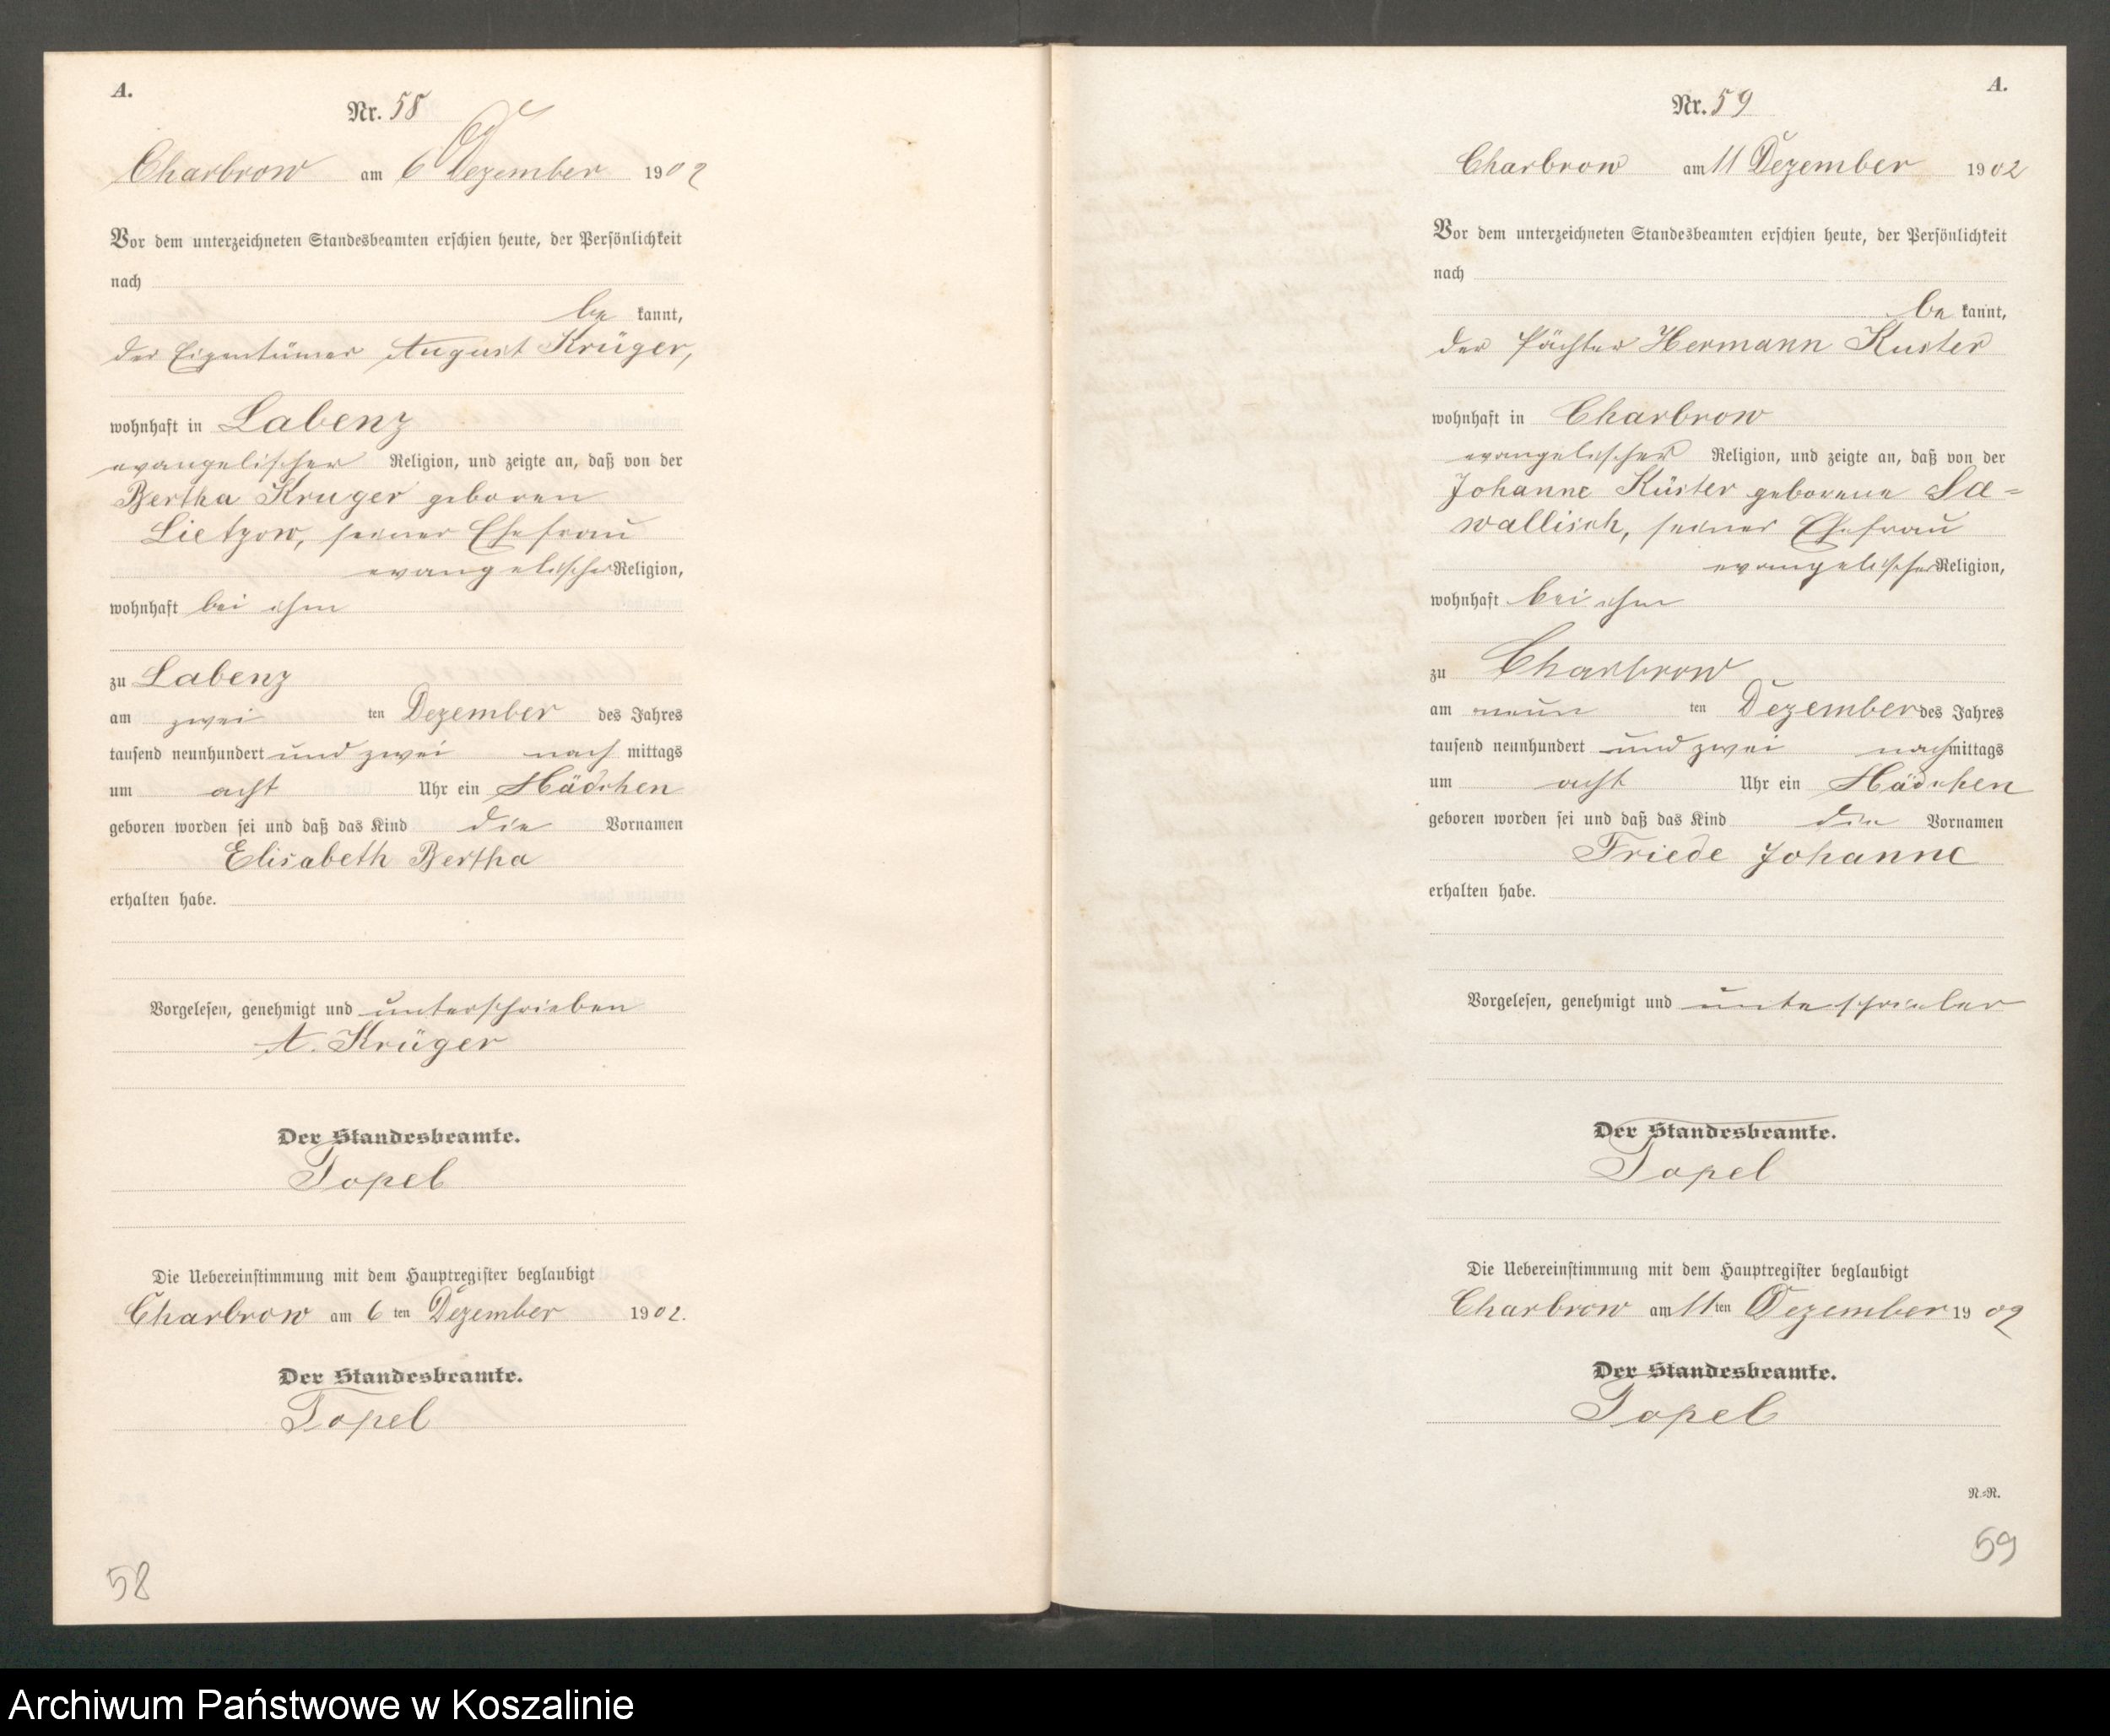 A.
Nr. 58
Charbrow am 6 Dezember 1902
Vor dem unterzeichneten Standesbeamten erschien heute, der Persönlichkeit
nach
be kannt,
der Eigentümer August Krüger,
wohnhaft in Labenz
evangelischer Religion, und zeigte an, daß von der
Bertha Krüger geboren
Lietzow, seiner Ehefrau
evangelischer Religion,
wohnhaft bei ihm
zu Labenz
am zwei ten Dezember des Jahres
tausend neunhundert und zwei nach mittags
um acht Uhr ein Mädchen
geboren worden sei und daß das Kind die Vornamen
Elisabeth Bertha
erhalten habe.
Vorgelesen, genehmigt und unterschrieben
A. Krüger
Der Standesbeamte.
Topel
Die Uebereinstimmung mit dem Hauptregister beglaubigt
Charbrow am 6 ten Dezember 1902.
Der Standesbeamte.
Topel
58
A.
Nr. 59
Charbrow am 11 Dezember 1902
Vor dem unterzeichneten Standesbeamten erschien heute, der Persönlichkeit
nach
be kannt,
der Pächter Hermann Kuster
wohnhaft in Charbrow
evangelischer Religion, und zeigte an, daß von der
Johanne Küster geborene Sa=
wallisch, seiner Ehefrau
evangelischer Religion,
wohnhaft bei ihm
zu Charbrow
am neun ten Dezember des Jahres
tausend neunhundert und zwei nach mittags
um acht Uhr ein Mädchen
geboren worden sei und daß das Kind die Vornamen
Friede Johanne
erhalten habe.
Vorgelesen, genehmigt und unterschrieben
Der Standesbeamte.
Topel
Die Uebereinstimmung mit dem Hauptregister beglaubigt
Charbrow am 11 ten Dezember 1902
Der Standesbeamte.
Topel
N.=R.
59
Archiwum Państwowe w Koszalinie